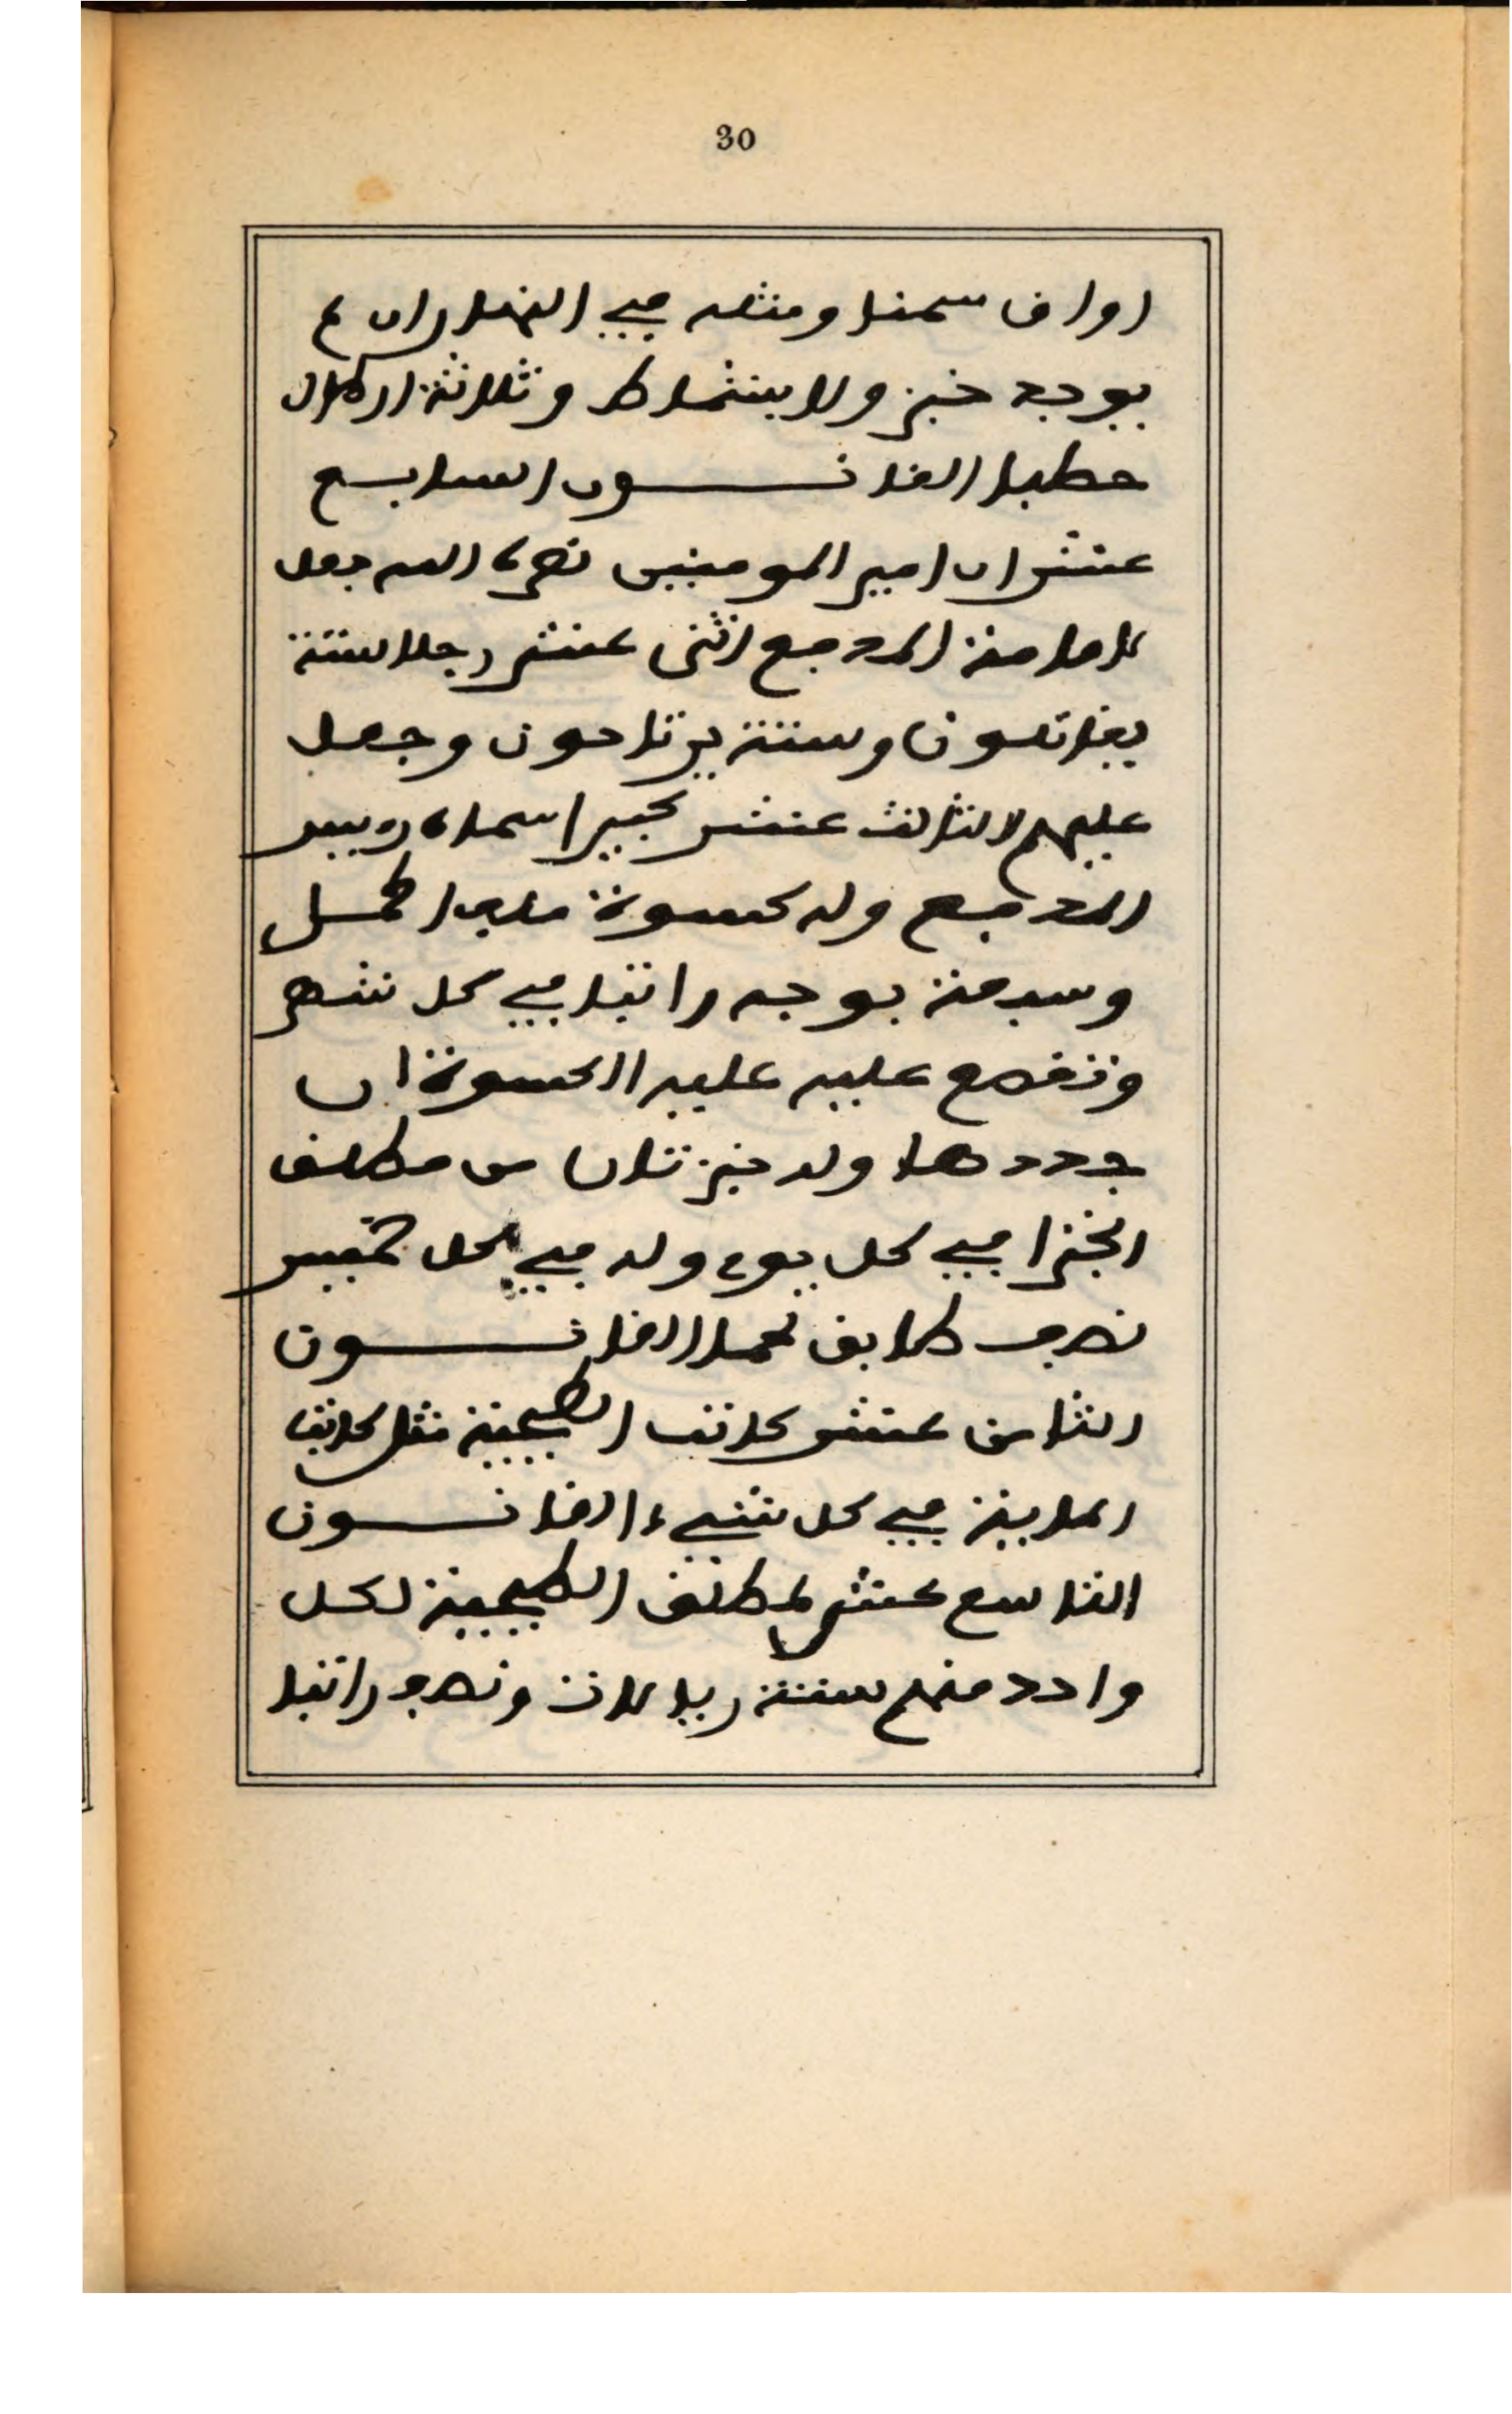 30
اواق سمنا ومثله في النهار ان لم
يوجد خبز ولا بشماط وثلاثة ارطال
حطبا القانون السابع
عشر ان امير المومنين نصره الله جعل
لامامة المدفع اثنى عشر رجلا ستة
يقاتلون وستة يرتاحون وجعل
عليهم الثالث عشر كبير اسماه رييس
المدفع وله كسوة ملف اكحل
وسبمة بوجه راتبا في كل شهر
وتقطع عليه عليه الكسوة ان
جددها وله خبزتان من مطلق
الخبز في كل يوم وله في كل خميس
نصف طابق لحما القانون
الثامن عشر كاتب الطبجية مثل كاتب
الماية في كل شيء القانون
التاسع عشر لمطلق الطبجية لكل
واحد منهم ستة ريالات ونصف راتبا